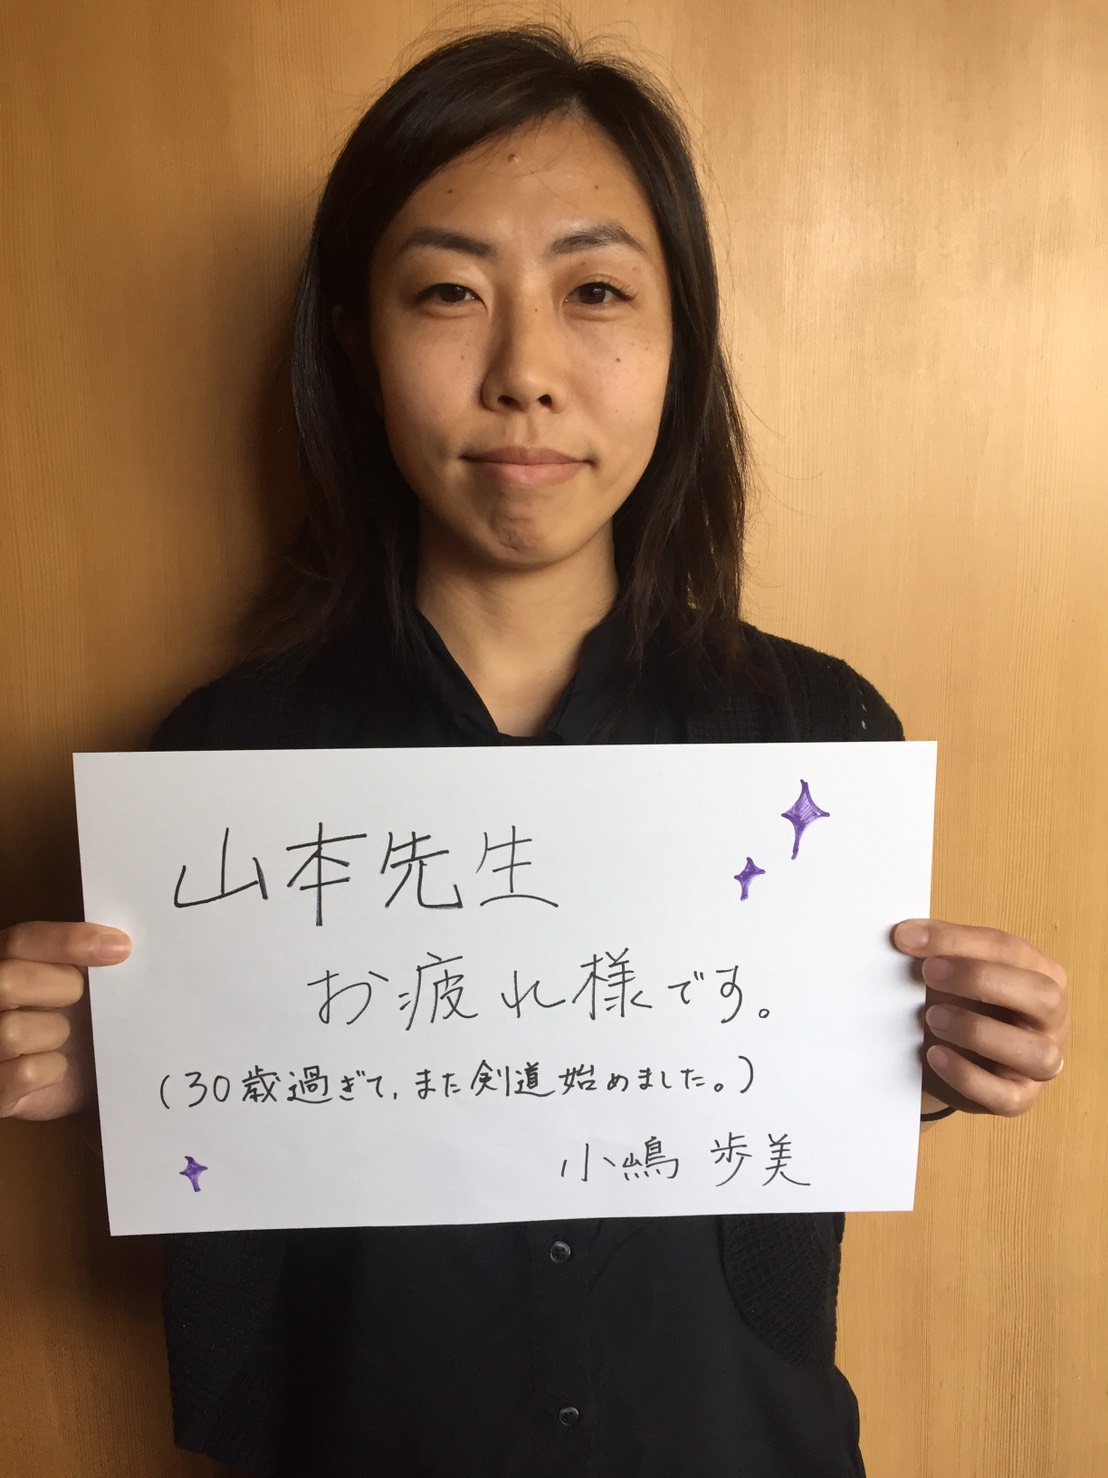 山本先生
お疲れ様です。
(30歳過ぎて、また剣道始めました。)
小嶋 歩美